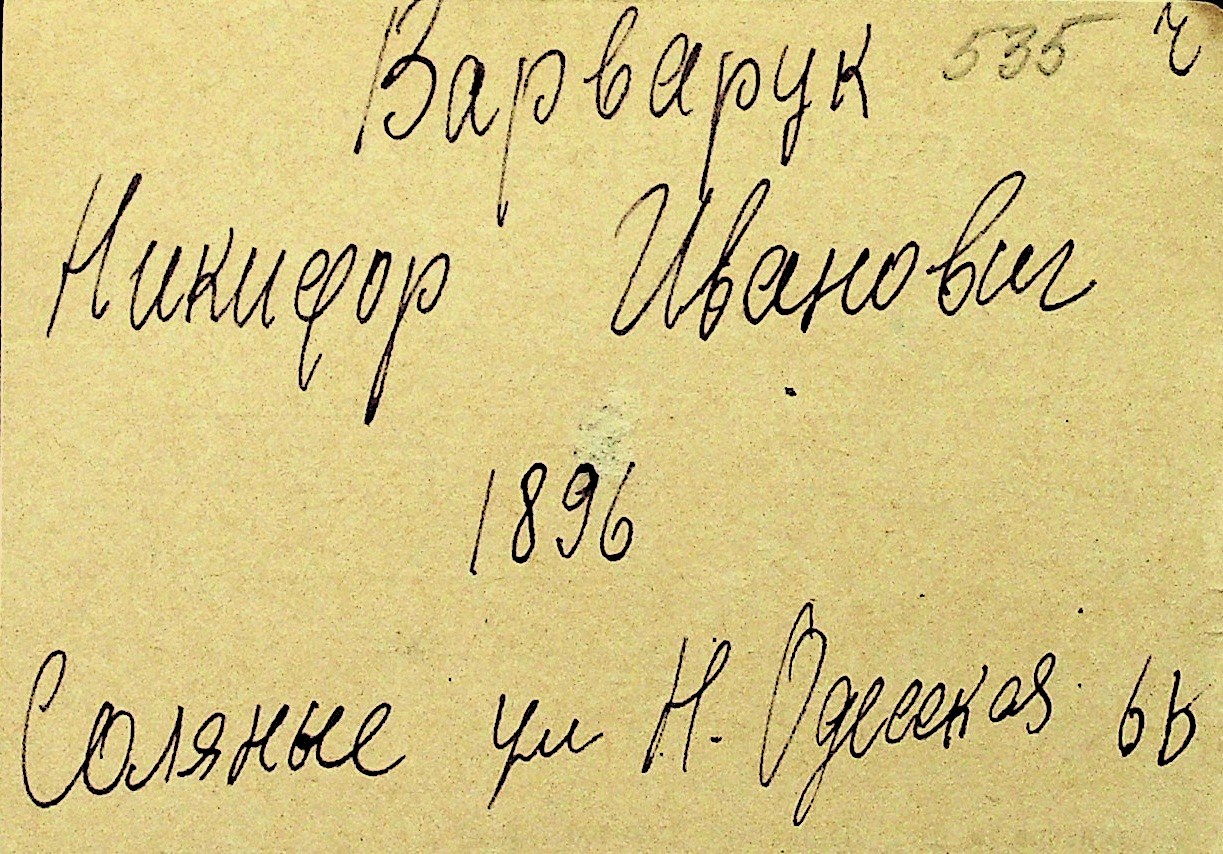 Варварук 535 ч
Никифор Иванович
1896
Соляные ул Н. Одесская 6Б